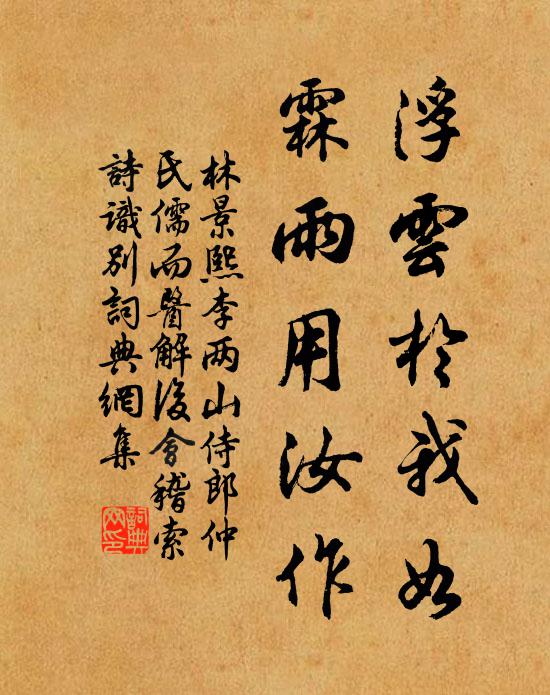 浮雲於我如
霖雨用汝作
林景熙李两山侍郎仲
氏儒而醫解后會稽索
詩識别詞典網集
詞典
网印